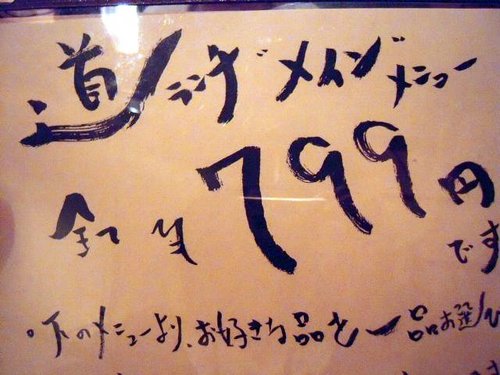 道ランチ"メインメニュー
全て 799円
です
。下のメニューより、お好きな品を一品お選び